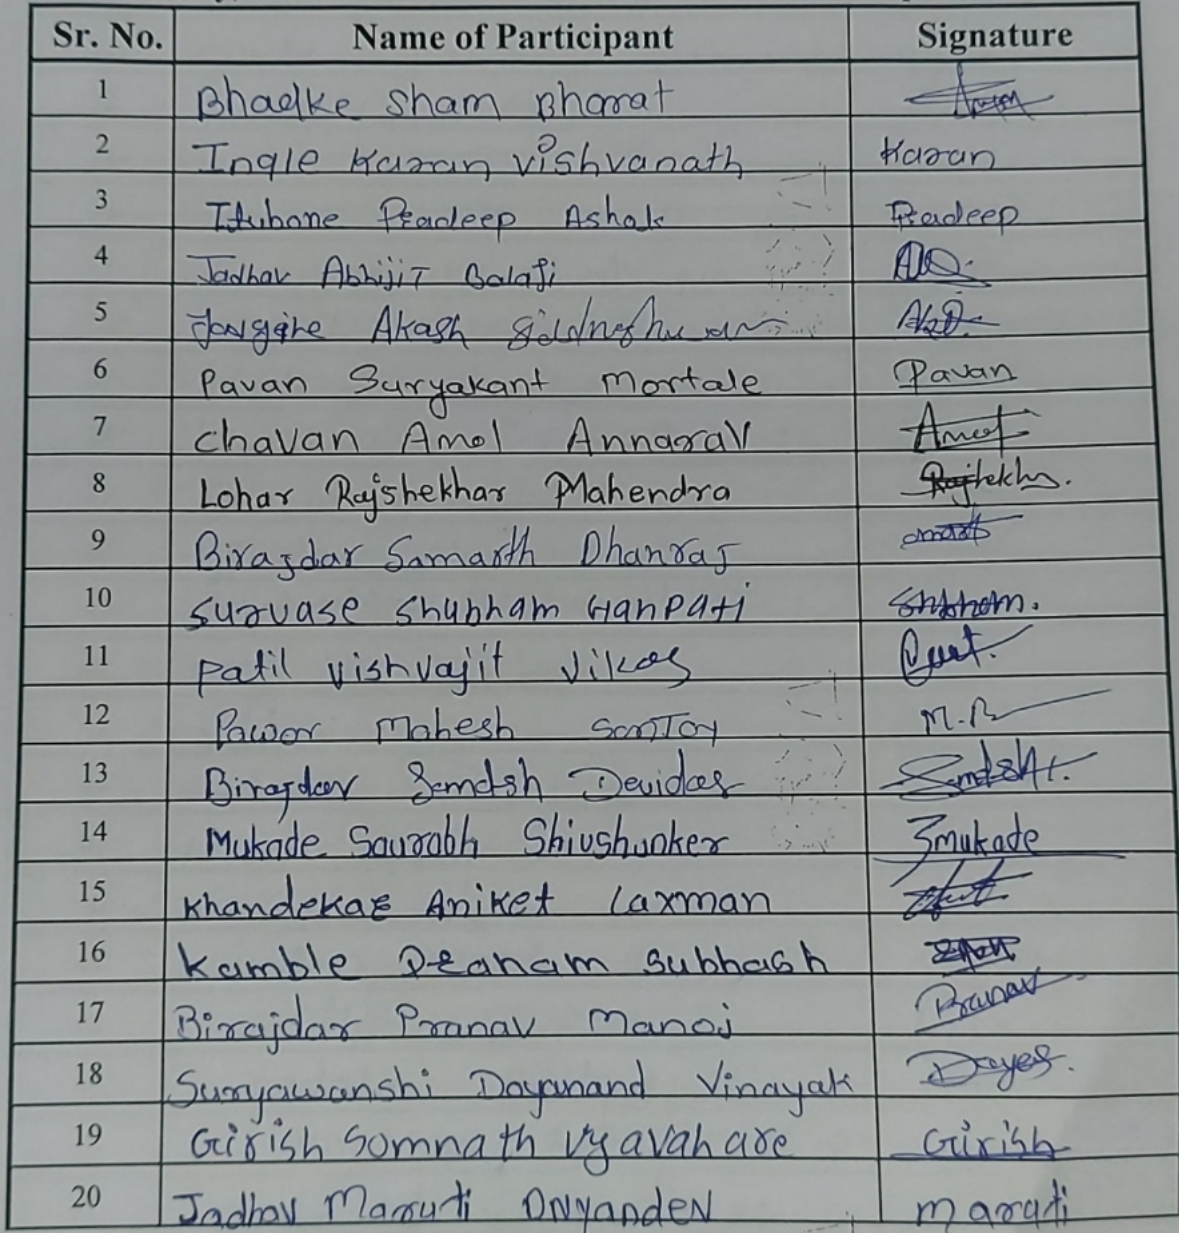 Sr. No. Name of Participant Signature
1 Bhadke Sham Bharat
2 Ingle Karan Vishvanath Karan
3 Itubone Pradeep Ashok Pradeep
4 Jadhav Abhijit Balaji
5 Akash
6 Pavan Suryakant Mortale Pavan
7 Chavan Amol Annarav Amol
8 Lohar Rajshekhar Mahendra Rajshekhr.
9 Birajdar Samarth Dhanraj
10 Survase Shubham Ganpati Shubham.
11 Patil Vishvajit Vikas
12 Pawar Mahesh M.B
13 Birajdar Sandesh Devidas
14 Mukade Saurabh Shivshanker Smukade
15 Khandekar Aniket Laxman
16 Kamble Subhash
17 Birajdar Pranav Manoj Pranav
18 Suryawanshi Dayanand Vinayak
19 Girish Somnath Vyavahare Girish
20 Jadhav Maruti Dnyandev maruti